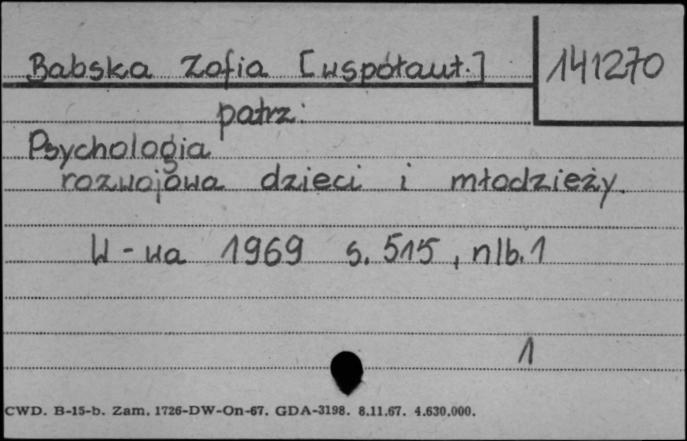 Babska Zofia [współaut.] 141270
patrz:
Psychologia
rozwojowa dzieci i młodzieży.
W-wa 1969 s. 515, nlb. 1
1
CWD. B-15-b. Zam. 1726-DW-On-67. GDA-3198. 8.11.67. 4.630.000.